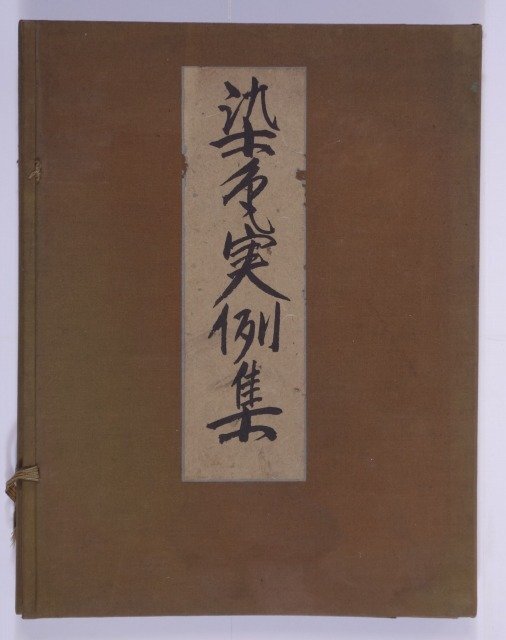 染色実例集